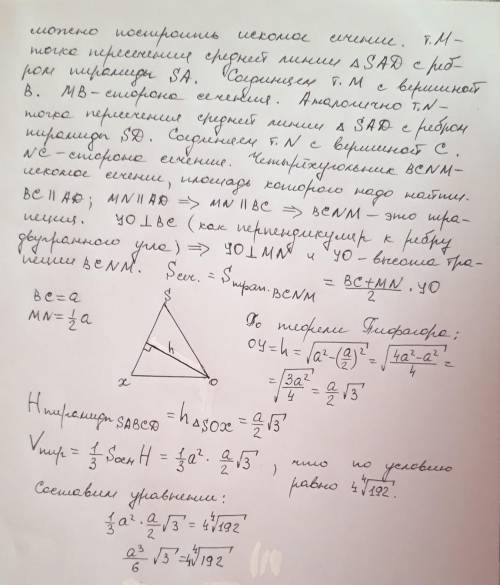 можно построить искомое сечение. т.M-
точка пересечения средней линии △SAD с реб-
ром пирамиды SA. Соединяем т.M с вершиной
B. MB-сторона сечения. Аналогично т.N-
точка пересечения средней линии △SAD с ребром
пирамиды SD. Соединяем т.N с вершиной C.
NC-сторона сечения. Четырёхугольник BCNM-
искомое сечение, площадь которого надо найти.
BC∥AD; MN∥AD ⇒ MN∥BC ⇒ BCNM-это тра-
пеция. YO⊥BC (как перпендикуляр к ребру
двугранного угла) ⇒ YO⊥MN и YO-высота тра-
пеции BCNM. Sсеч. = Sтрап. BCNM = (BC+MN)/2 · YO
BC=a
MN=1/2 a
S
h
x
o
По теореме Пифагора:
OY=h=√(a²-(a/2)²)=√((4a²-a²)/4)=
=√(3a²/4)=a/2 √3
Hпирамиды SABCD = h△SOX = a/2 √3
Vпир= 1/3 Sосн H = 1/3 a² · a/2 √3, что по условию
равно 4⁴√192.
Составим уравнение:
1/3 a² · a/2 √3 = 4⁴√192
a³/6 √3 = 4⁴√192